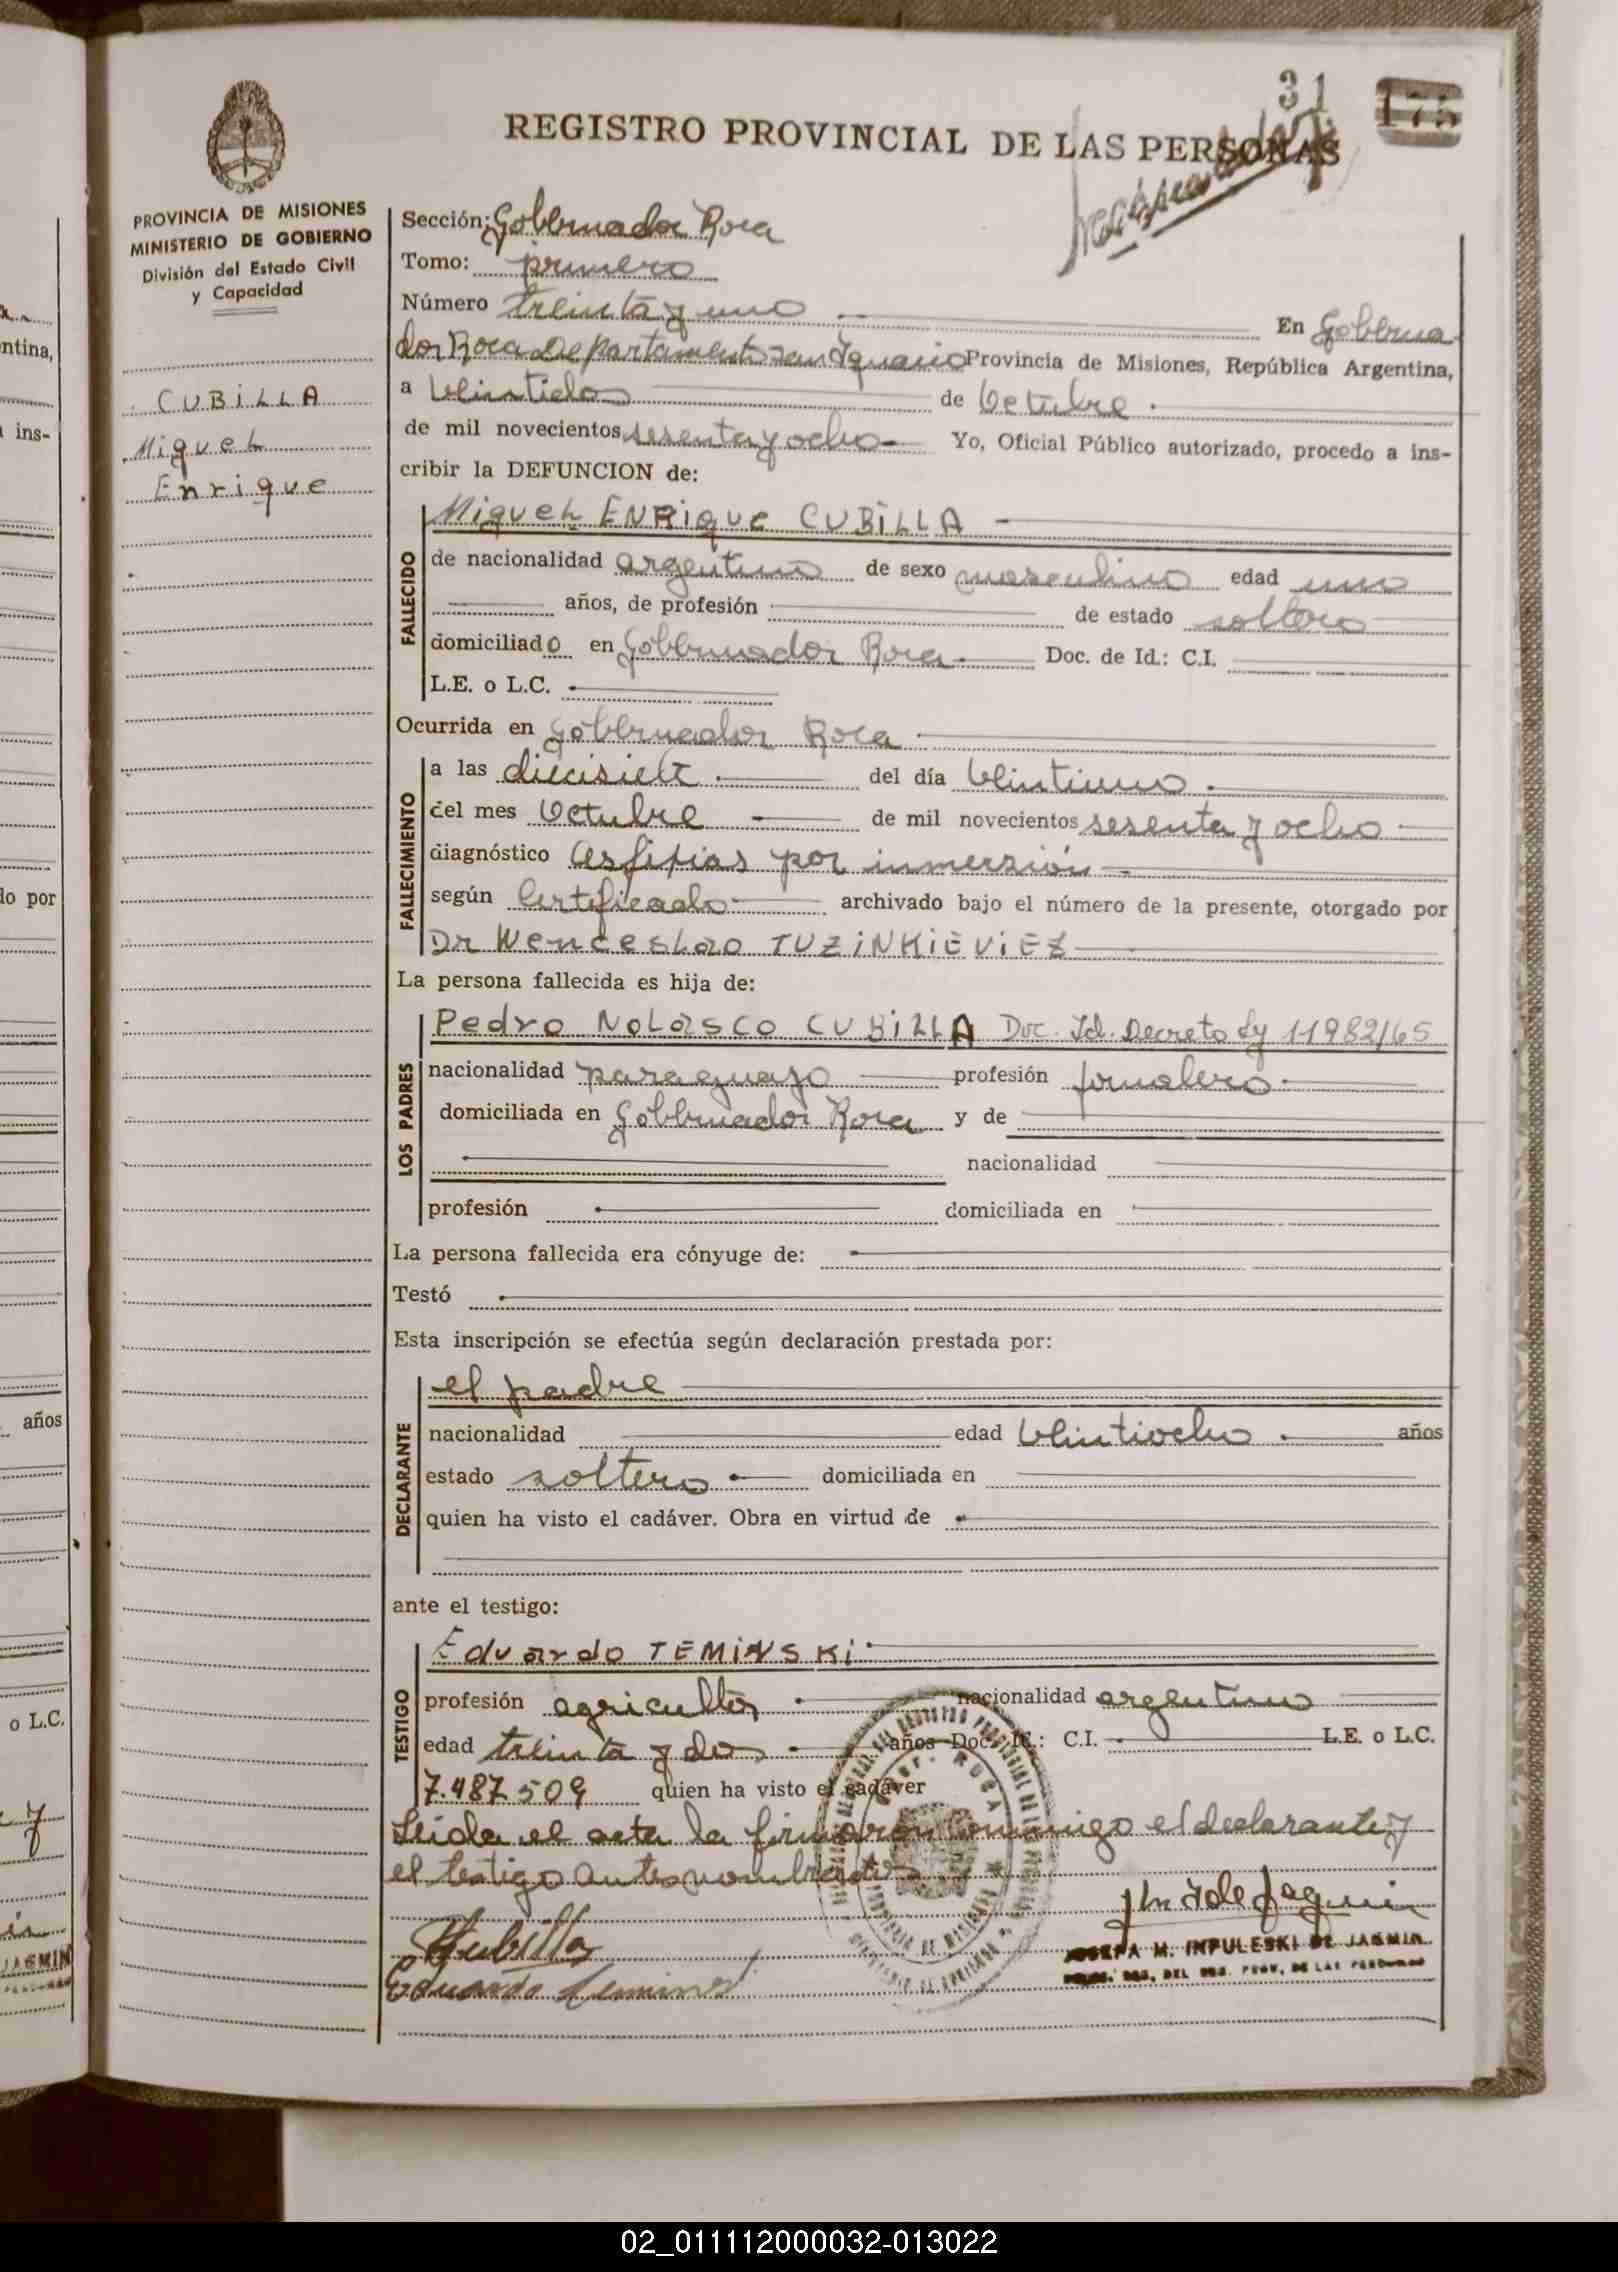 31
175
REGISTRO PROVINCIAL DE LAS PERSONAS
PROVINCIA DE MISIONES
MINISTERIO DE GOBIERNO
División del Estado Civil
y Capacidad
CUBILLA
Miguel
Enrique
Sección: Gobernador Roca
Tomo: primero
Número treinta y uno En Goberna
dor Roca Departamento San Ignacio Provincia de Misiones, República Argentina,
a veintidos de Octubre
de mil novecientos sesenta y ocho Yo, Oficial Público autorizado, procedo a ins-
cribir la DEFUNCION de:
FALLECIDO
Miguel ENRique CUBILLA
de nacionalidad argentino de sexo masculino edad uno
años, de profesión de estado soltero
domiciliado en Gobernador Roca Doc. de Id.: C.I.
L.E. o L.C.
Ocurrida en Gobernador Roca
FALLECIMIENTO
a las diecisiete del día veintiuno
del mes Octubre de mil novecientos sesenta y ocho
diagnóstico Asfixias por inmerzión
según Certificado archivado bajo el número de la presente, otorgado por
Dr Wenceslao TUZINKIEVIEZ
La persona fallecida es hija de:
LOS PADRES
Pedro Nolasco CUBILLA Doc. Id. Decreto Ly 11982/65
nacionalidad paraguayo profesión jornalero
domiciliada en Gobernador Roca y de
nacionalidad
profesión domiciliada en
La persona fallecida era cónyuge de:
Testó
Esta inscripción se efectúa según declaración prestada por:
DECLARANTE
el padre
nacionalidad edad veintiocho años
estado soltero domiciliada en
quien ha visto el cadáver. Obra en virtud de
ante el testigo:
TESTIGO
Eduardo TEMINSKI
profesión agricultor nacionalidad argentino
edad treinta y dos años Doc. Id.: C.I. L.E. o L.C.
7.487.509 quien ha visto el cadáver
Leida el acta la firmaron conmigo el declarante y
el testigo antes nombrados
Cubilla
Eduardo Teminski
JOSEFA M. INPULESKI DE JASMIN
02_011112000032-013022